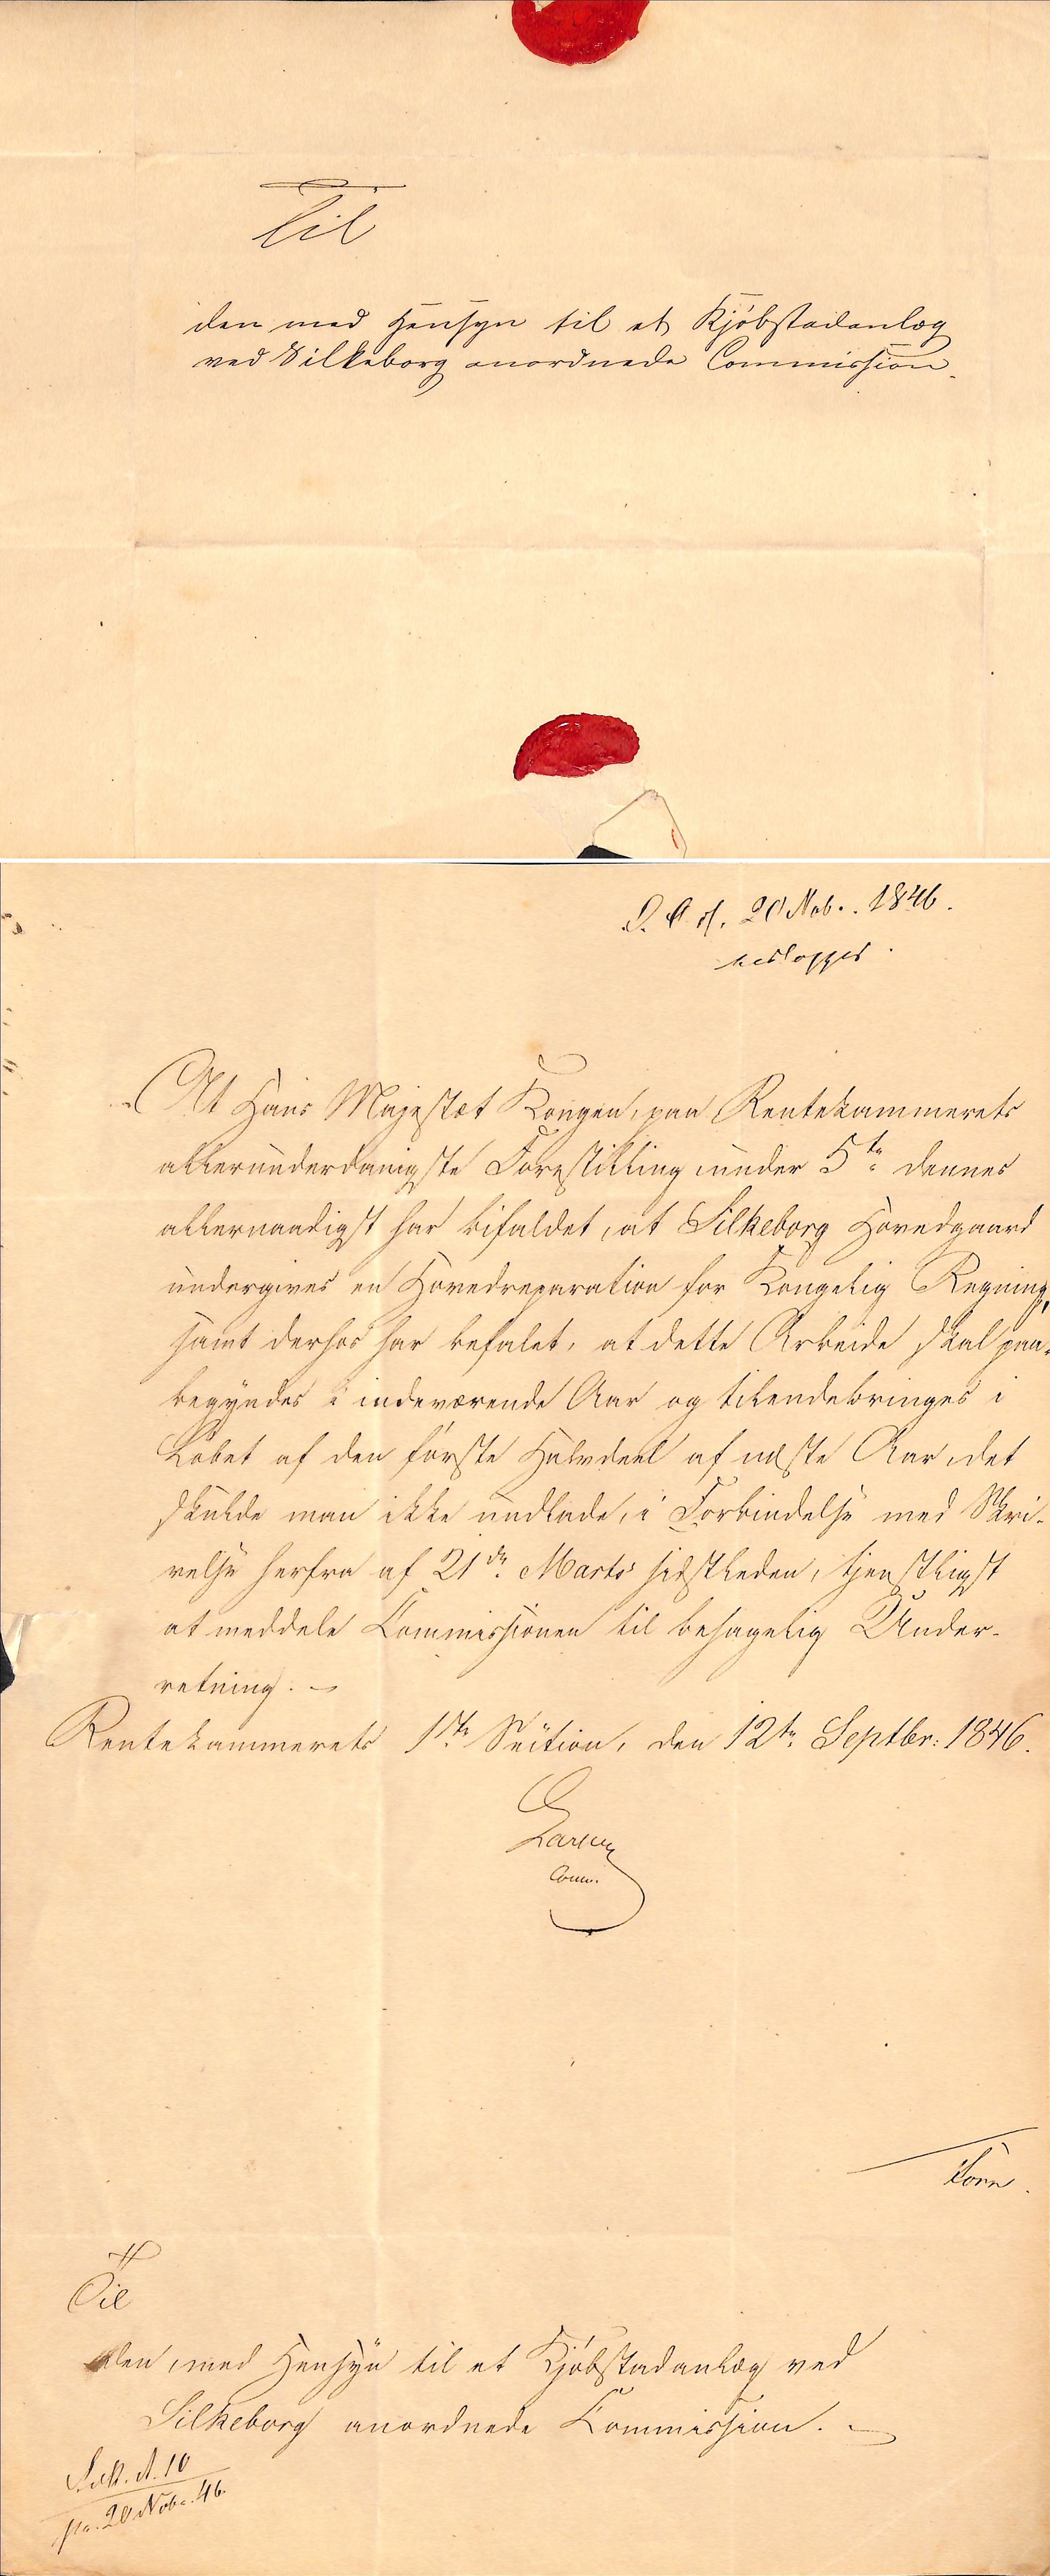 Til
den med Hensyn til et Kjöbstadanlæg
ved Silkeborg anordnede Commission.
20 Nob. 1846.
henlægges.
At Hans Majestæt Kongen, paa Rentekammerets
allerunderdanigste Forestilling under 5te dennes
allernaadigst har bifaldet, at Silkeborg Hovedgaard
undergives en Hovedreparation for Kongelig Regning,
samt derhos har befalet, at dette Arbeide skal paa-
begyndes i indeværende Aar og tilendebringes i
Löbet af den förste Halvdeel af næste Aar, det
skulde man ikke undlade, i Forbindelse med Skri-
velse herfra af 21de Marts sidstleden, tjenstligst
at meddele Commissionen til behagelig Under-
retning. -
Rentekammerets 1ste Section, den 12te Septbr: 1846.
Larsen
Comm.
Til
den, med Hensyn til et Kjöbstadanlæg ved
Silkeborg anordnede Commission. -
10
20 Nob. 46.